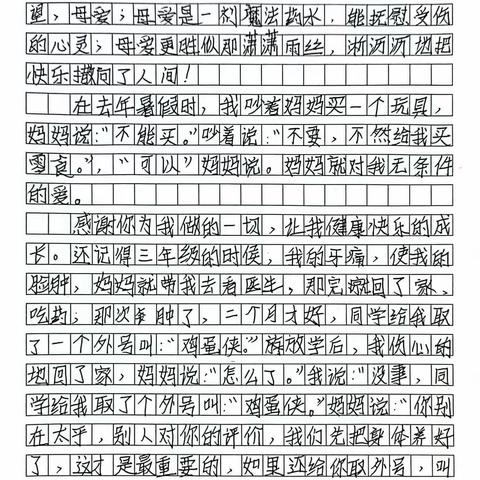 望，母爱；母爱是一剂魔法药水，能抚慰受伤
的心灵；母爱更胜似那潇潇雨丝，淅沥沥地把
快乐撒向了人间！
在去年暑假时，我吵着妈妈买一个玩具，
妈妈说：“不能买。”吵着说：“不要，不然给我买
零食。”，“可以”妈妈说。妈妈就对我无条件
的爱。
感谢你为我做的一切，让我健康快乐的成
长。还记得三年级的时候，我的牙痛，使我的
脸肿，妈妈就带我去看医生，那完就回了家、
吃药；那次年肿了，二个月才好，同学给我取
了一个外号叫：“鸡蛋侠。”放学后，我伤心的
地回了家，妈妈说：“怎么了。”我说：“没事，同
学给我取了个外号叫：“鸡蛋侠。”妈妈说：“你别
在太乎，别人对你的评价，我们先把身体养好
了，这才是最重要的，如里还给你取外号，叫